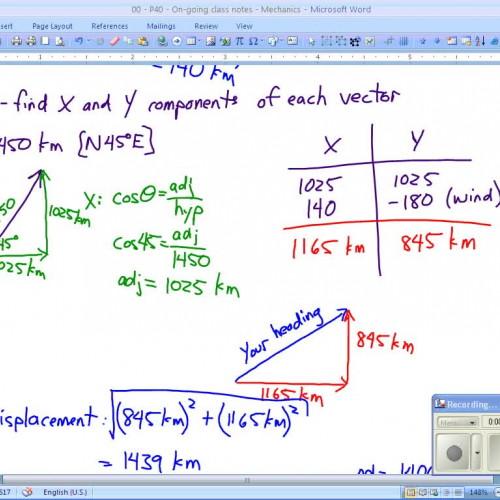 00 - P40 - On-going class notes - Mechanics - Microsoft Word
Page Layout References Mailings Review View
140 km
- find X and Y components of each vector
450 km [N45°E]
X Y
1025 1025
140 -180 (wind)
1165 km 845 km
1025 km
45°
025 km
X: cosθ = adj/hyp
cos45 = adj/1450
adj = 1025 km
Your heading
845 km
1165 km
isplacement: √(845 km)² + (1165 km)²
= 1439 km
Recording...
Menu
0:0
517 English (U.S.) 148%